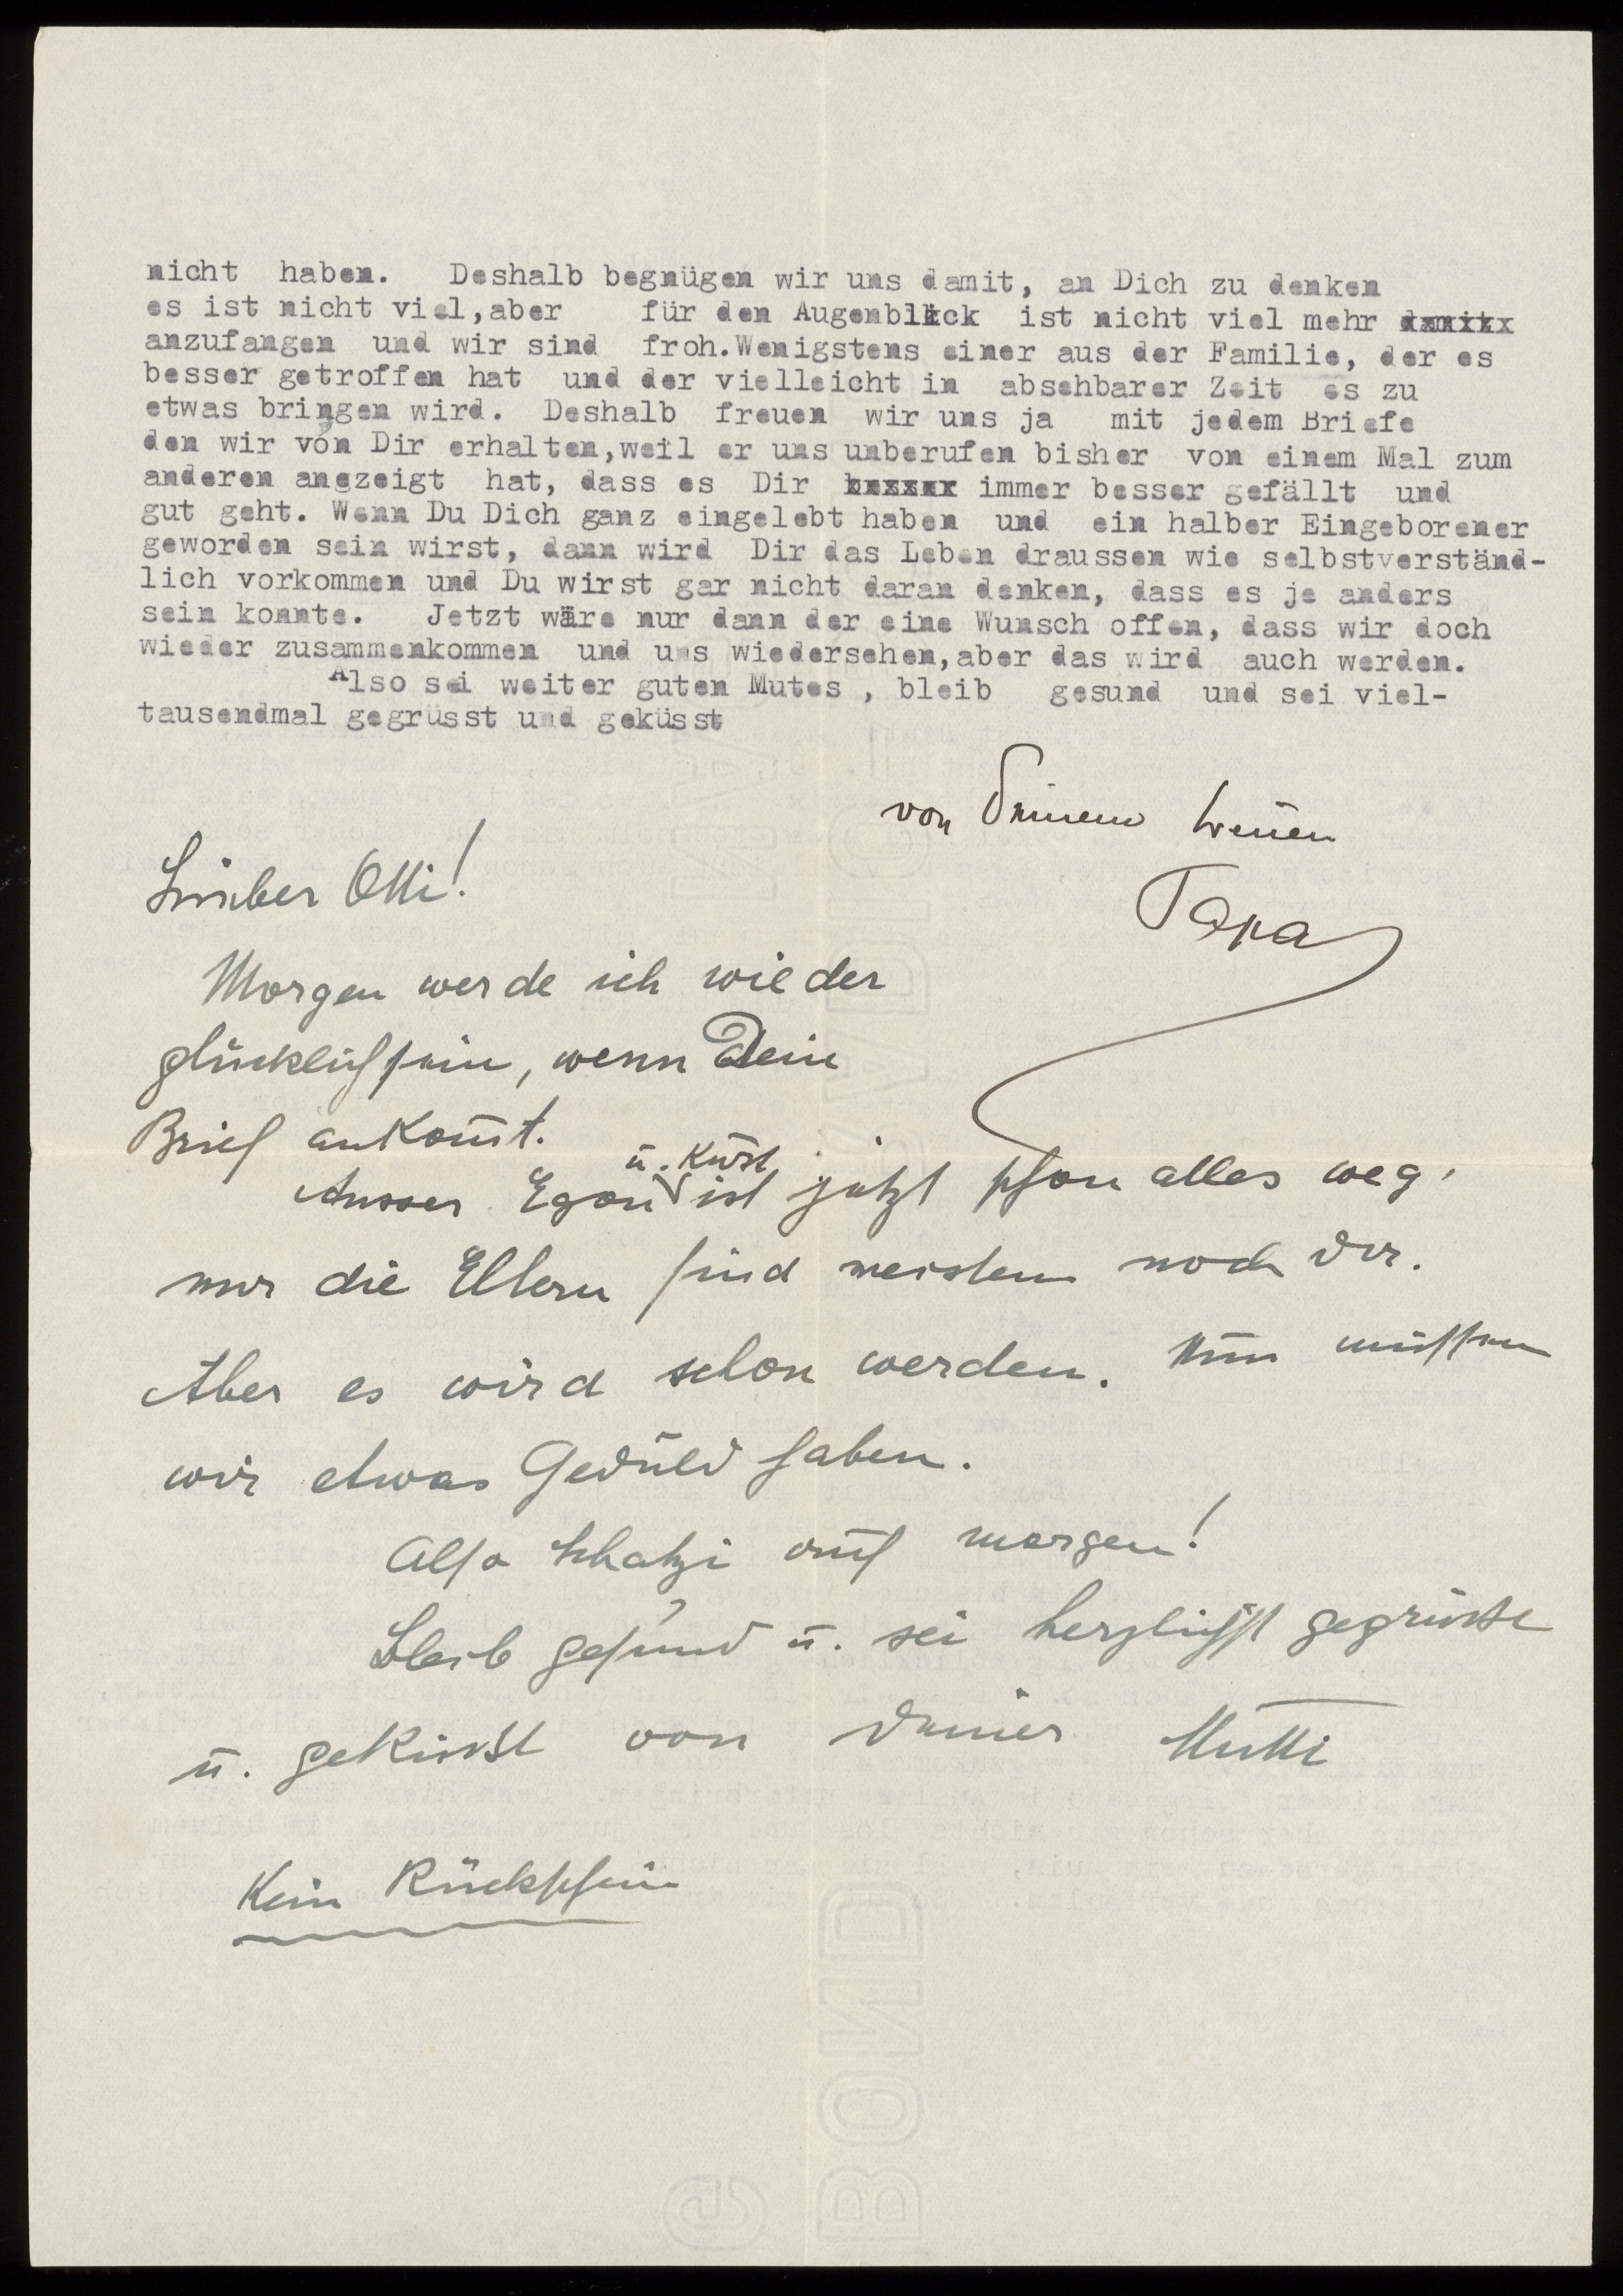 nicht haben. Deshalb begnügen wir uns damit, an Dich zu denken
es ist nicht viel,aber für den Augenblick ist nicht viel mehr
anzufangen und wir sind froh.Wenigstens einer aus der Familie, der es
besser getroffen hat und der vielleicht in absehbarer Zeit es zu
etwas bringen wird. Deshalb freuen wir uns ja mit jedem Briefe
den wir von Dir erhalten,weil er uns unberufen bisher von einem Mal zum
anderen angezeigt hat, dass es Dir immer besser gefällt und
gut geht. Wenn Du Dich ganz eingelebt haben und ein halber Eingeborener
geworden sein wirst, dann wird Dir das Leben draussen wie selbstverständ-
lich vorkommen und Du wirst gar nicht daran denken, dass es je anders
sein konnte. Jetzt wäre nur dann der eine Wunsch offen, dass wir doch
wieder zusammenkommen und uns wiedersehen,aber das wird auch werden.
Also sei weiter guten Mutes , bleib gesund und sei viel-
tausendmal gegrüsst und geküsst
von Deinem treuen
Papa
Lieber Otti!
Morgen werde ich wieder
glücklich sein, wenn Dein
Brief ankommt.
Ausser Egon u. Kurt ist jetzt schon alles weg,
nur die Eltern sind meistens noch da.
Aber es wird schon werden. Nun müssen
wir etwas Geduld haben.
Also Schatzi auf morgen!
Bleib gesund u. sei herzlichst gegrüsst
u. geküsst von Deiner Mutti
Kein Rückschein
BOND